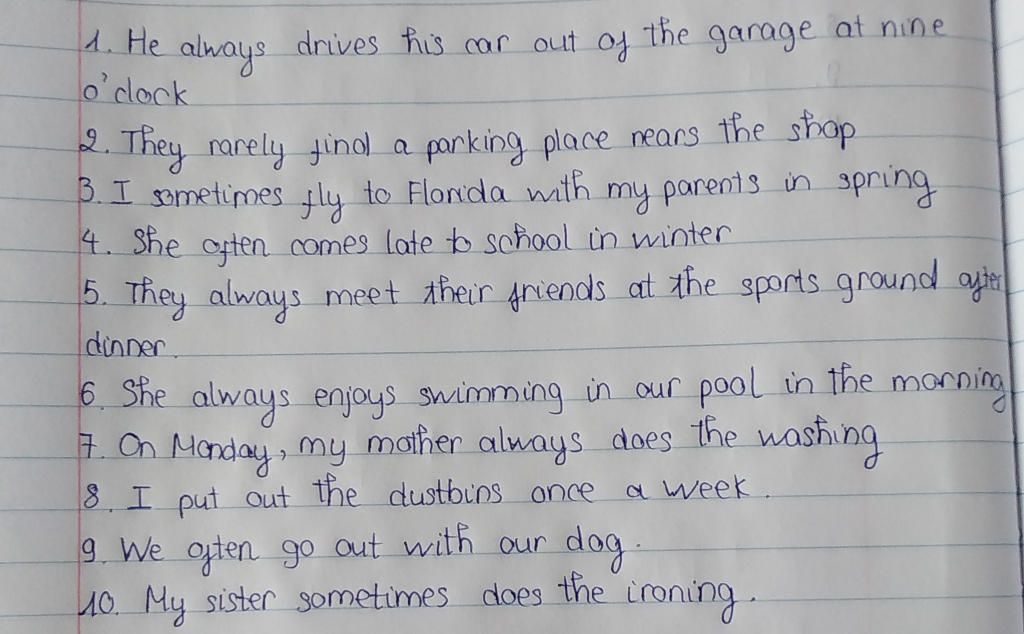 1. He always drives his car out of the garage at nine
o'clock
2. They rarely find a parking place nears the shop
3. I sometimes fly to Florida with my parents in spring
4. She often comes late to school in winter
5. They always meet their friends at the sports ground after
dinner.
6. She always enjoys swimming in our pool in the morning
7. On Monday, my mother always does the washing
8. I put out the dustbins once a week.
9. We often go out with our dog.
10. My sister sometimes does the ironing.